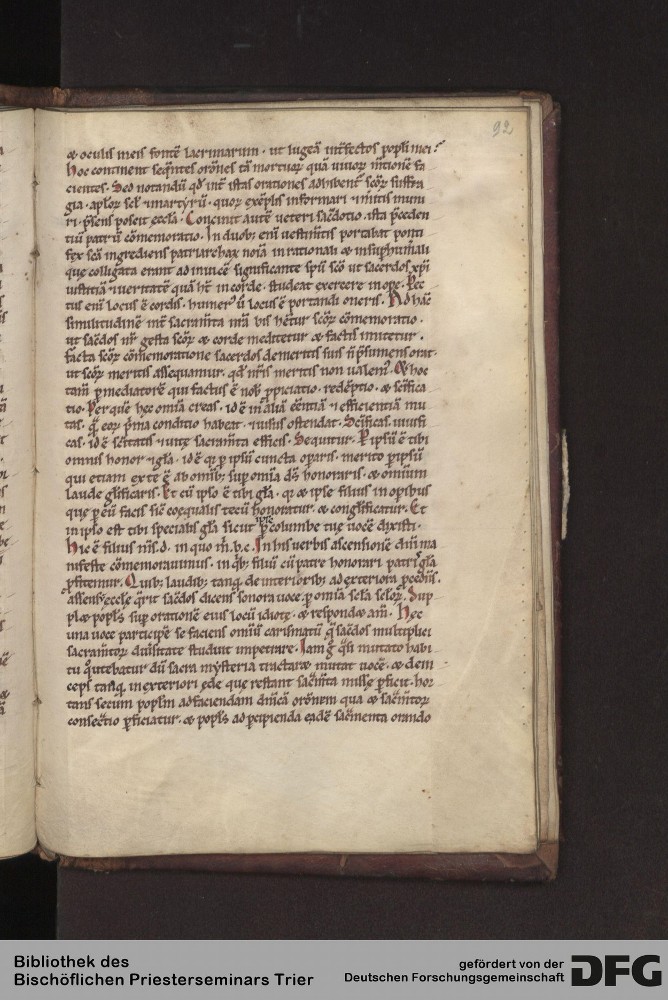 92
& oculis meis fontē lacrimarum · ut lugeā int̄fectos popłi mei ·
Hoc continent seq̄ntes or̄ones tā mortuor̄ quā uiuor̄ m̄tionē fa
cientes · Sed notandū qd̓ int̄ istas orationes adhibent̄ scōr̄ suffra
gia · apłor̄ scł · 7martyrū · quor̄ exēplis informari · 7mitis muni
ri · p̄sens poscit eccła · Concinit autē ueteri sac̄dotio · ista p̄ceden
tiū patrū cōmemoratio · In duob; eni uestim̄tis portabat ponti
fex scā ingrediens patriarchar̄ noīa in rationali & insup̄hum̄ali
quę colligata erant ad inuicē significante spū scō ut sacerdos xp̄i
iustitiā 7ueritatē quā ht̄ in corde · studeat exercere in ope · Pec
tus enī locus ē cordis · humer᷒ ū locus ē portandi oneris · Ad hāc
similitudinē int̄ sacram̄ta m̄a bis hētur scōr̄ cōmemoratio ·
ut sac̄dos nr̄ gesta scōr̄ & corde meditetur & factis imitetur ·
facta scōr̄ cōmemoratione sacerdos de meritis suis n̄ p̄sumens orat ·
ut scōr̄ meritis assequamur · qd̓ nr̄is meritis non ualem᷒ · & hoc
tam̄ p̄ mediatorē qui factus ē nob̄ p̄piciatio · redēptio · & sc̄ifica
tio · Per quē hęc omīa creas · id ē in aliā ēentiā 7 efficientiā mu
tas · q̄ eor̄ p̄ma conditio habeat · 7 uisus ostendat · Sc̄ificas · uiuifi
cas · id ē sc̄itatis 7uitę sacram̄ta efficis · Sequitur · P ipsū ē tibi
omnis honor 7gła · id ē q᷒ p̄ ipsū cuncta op̄aris · merito p̄ ipsū
qui etiam ex te ē ab omīb; sup̄ omīa ds̄ honoraris · & omīum
laude glificaris · Et cū ipso ē tibi gła · q᷒ & ipse filius in op̄ibus
quę p̄ eū facis sic coequalis tecū honoratur · & conglificatur · Et
in ipso est tibi specialis gła sicut ipse p̄ columbę tuę uocē dixisti ·
Hic ē filius m̄s · d · in quo m̄ · b · c · In his uerbis ascensionē dn̄i ma
nifeste cōmemorauimus · in qb; filiū cū patre honorari patri gła
p̄fitemur · Quib; laudib; tanq̄ de interiorib; ad exteriora p̄cediēs ·
assensū ecclę q̄rit sac̄dos dicens sonora uoce · p̄ omīa scła scłor̄ · Sup
plex popłs sup̄ orationē eius locū idiotę · & respondeᷤ am̄ · Hęc
una uoce participē se faciens omīū carismatū q̄ sac̄dos multiplici
sacram̄tor̄ diūsitate studuit impetrare · Iam ḡ q̄si mutato habi
tu q᷒ utebatur dū sacra mysteria tractaret mutat uocē · & dein
ceps tanq̄ in exteriori ęde quę restant sac̄m̄ta missę p̄ficit · hor
tans secum popłm ad faciendam dn̄icā or̄onem qua & sac̄m̄tor̄
consec̄tio p̄ficiatur · & popłs ad p̄cipienda eadē sac̄menta orando
Bibliothek des
Bischöflichen Priesterseminars Trier
gefördert von der
Deutschen Forschungsgemeinschaft
DFG